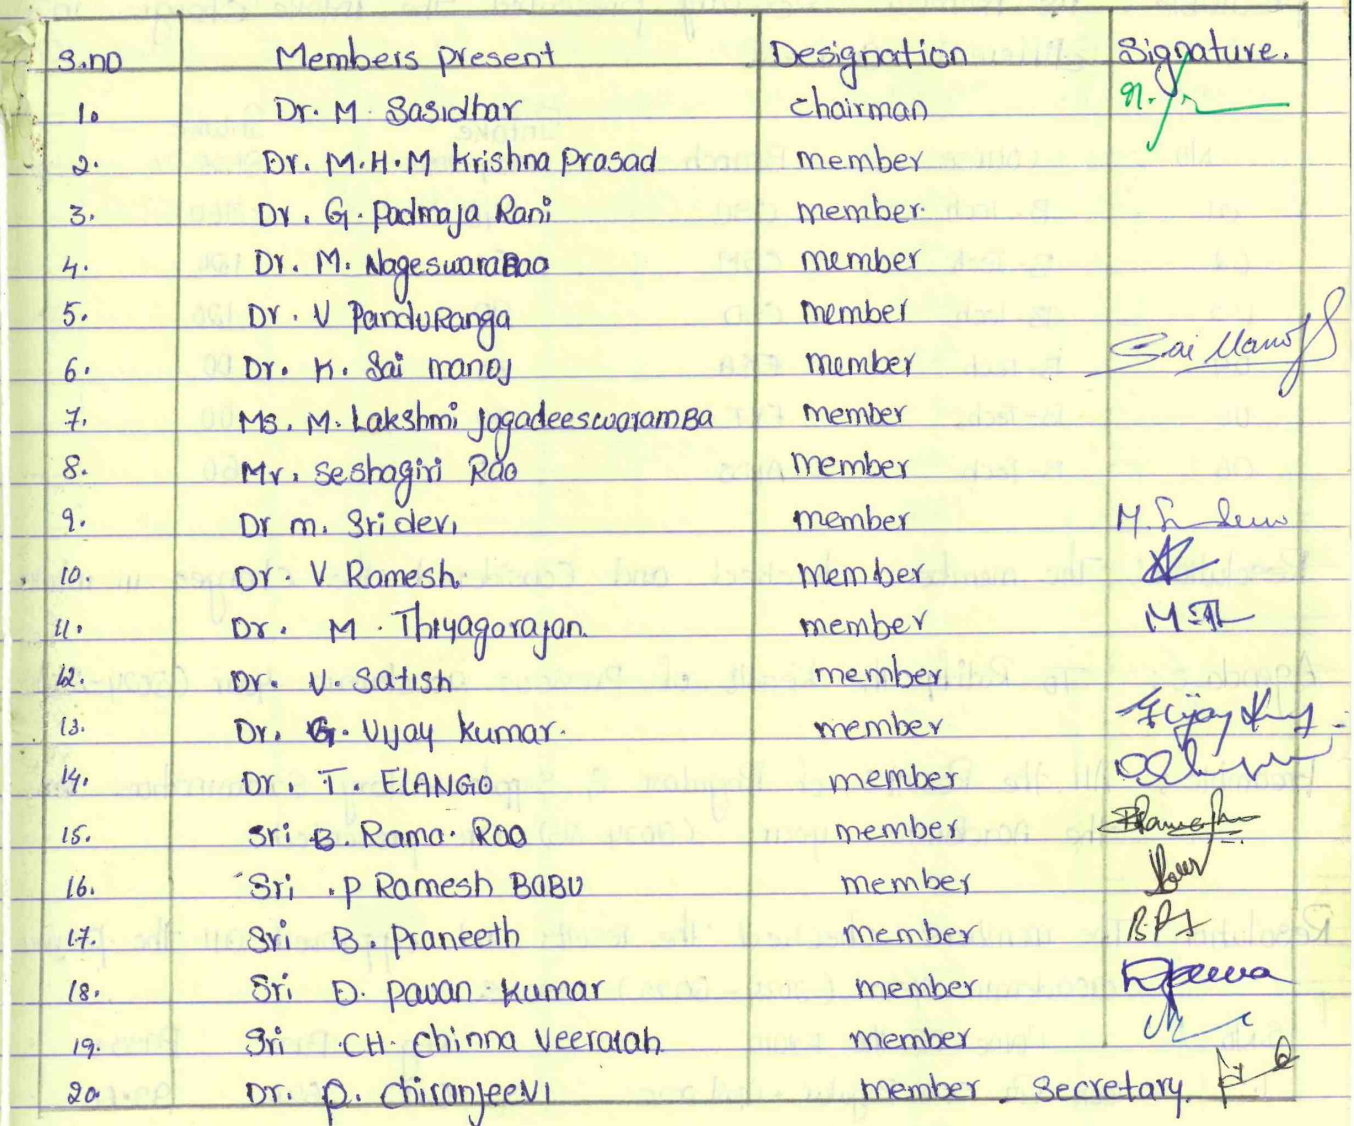 S.no Members present Designation Signature.
1. Dr. M. Sasidhar chairman
2. Dr. M.H.M Krishna Prasad member
3. Dr. G. Padmaja Rani member.
4. Dr. M. NageswaraRao member
5. Dr. V PanduRanga member
6. Dr. K. Sai manoj member Sai Manoj
7. Ms. M. Lakshmi Jagadeeswaramba member
8. Mr. Seshagiri Rao member
9. Dr m. Sridevi member M. Sridevi
10. Dr. V Ramesh. member
11. Dr. M. Thiyagarajan. member
12. Dr. V. Satish member
13. Dr. G. Vijay Kumar. member
14. Dr. T. ELANGO member
15. Sri B. Rama. Rao member
16. Sri .P Ramesh BABU member
17. Sri B. Praneeth member
18. Sri D. pavan kumar member
19. Sri .CH. Chinna Veeraiah member
20. Dr. P. Chiranjeevi member - Secretary.